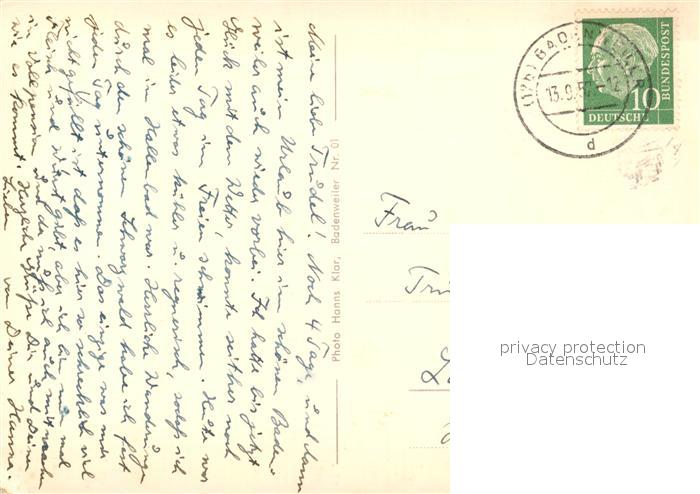 Meine liebe Trudel! Noch 4 Tage, und dann
ist mein Urlaub hier im schönen Baden-
weiler auch wieder vorbei. Ich hatte bis jetzt
Glück mit dem Wetter, konnte seither noch
jeden Tag im Freien schwimmen. Heute war
es leider etwas kühler u. regnerisch, sodaß ich
mal im Hallenbad war. Herrliche Wanderungen
durch den schönen Schwarzwald habe ich fast
jeden Tag unternommen. Das einzige was mir
nicht gefällt ist, daß es hier so schrecklich viel
Fleisch und Wurst gibt, aber ich bin nun mal
in Vollpension und da muß ich auch mitmachen
wie es kommt. Herzliche Grüße Dir und Deinen
Lieben von Deiner Hanna.
Photo Hanns Klar, Badenweiler Nr. 01
(17b) BADENWEILER
13.9.57 - 12
d
10
DEUTSCHE
BUNDESPOST
Frau
privacy protection
Datenschutz